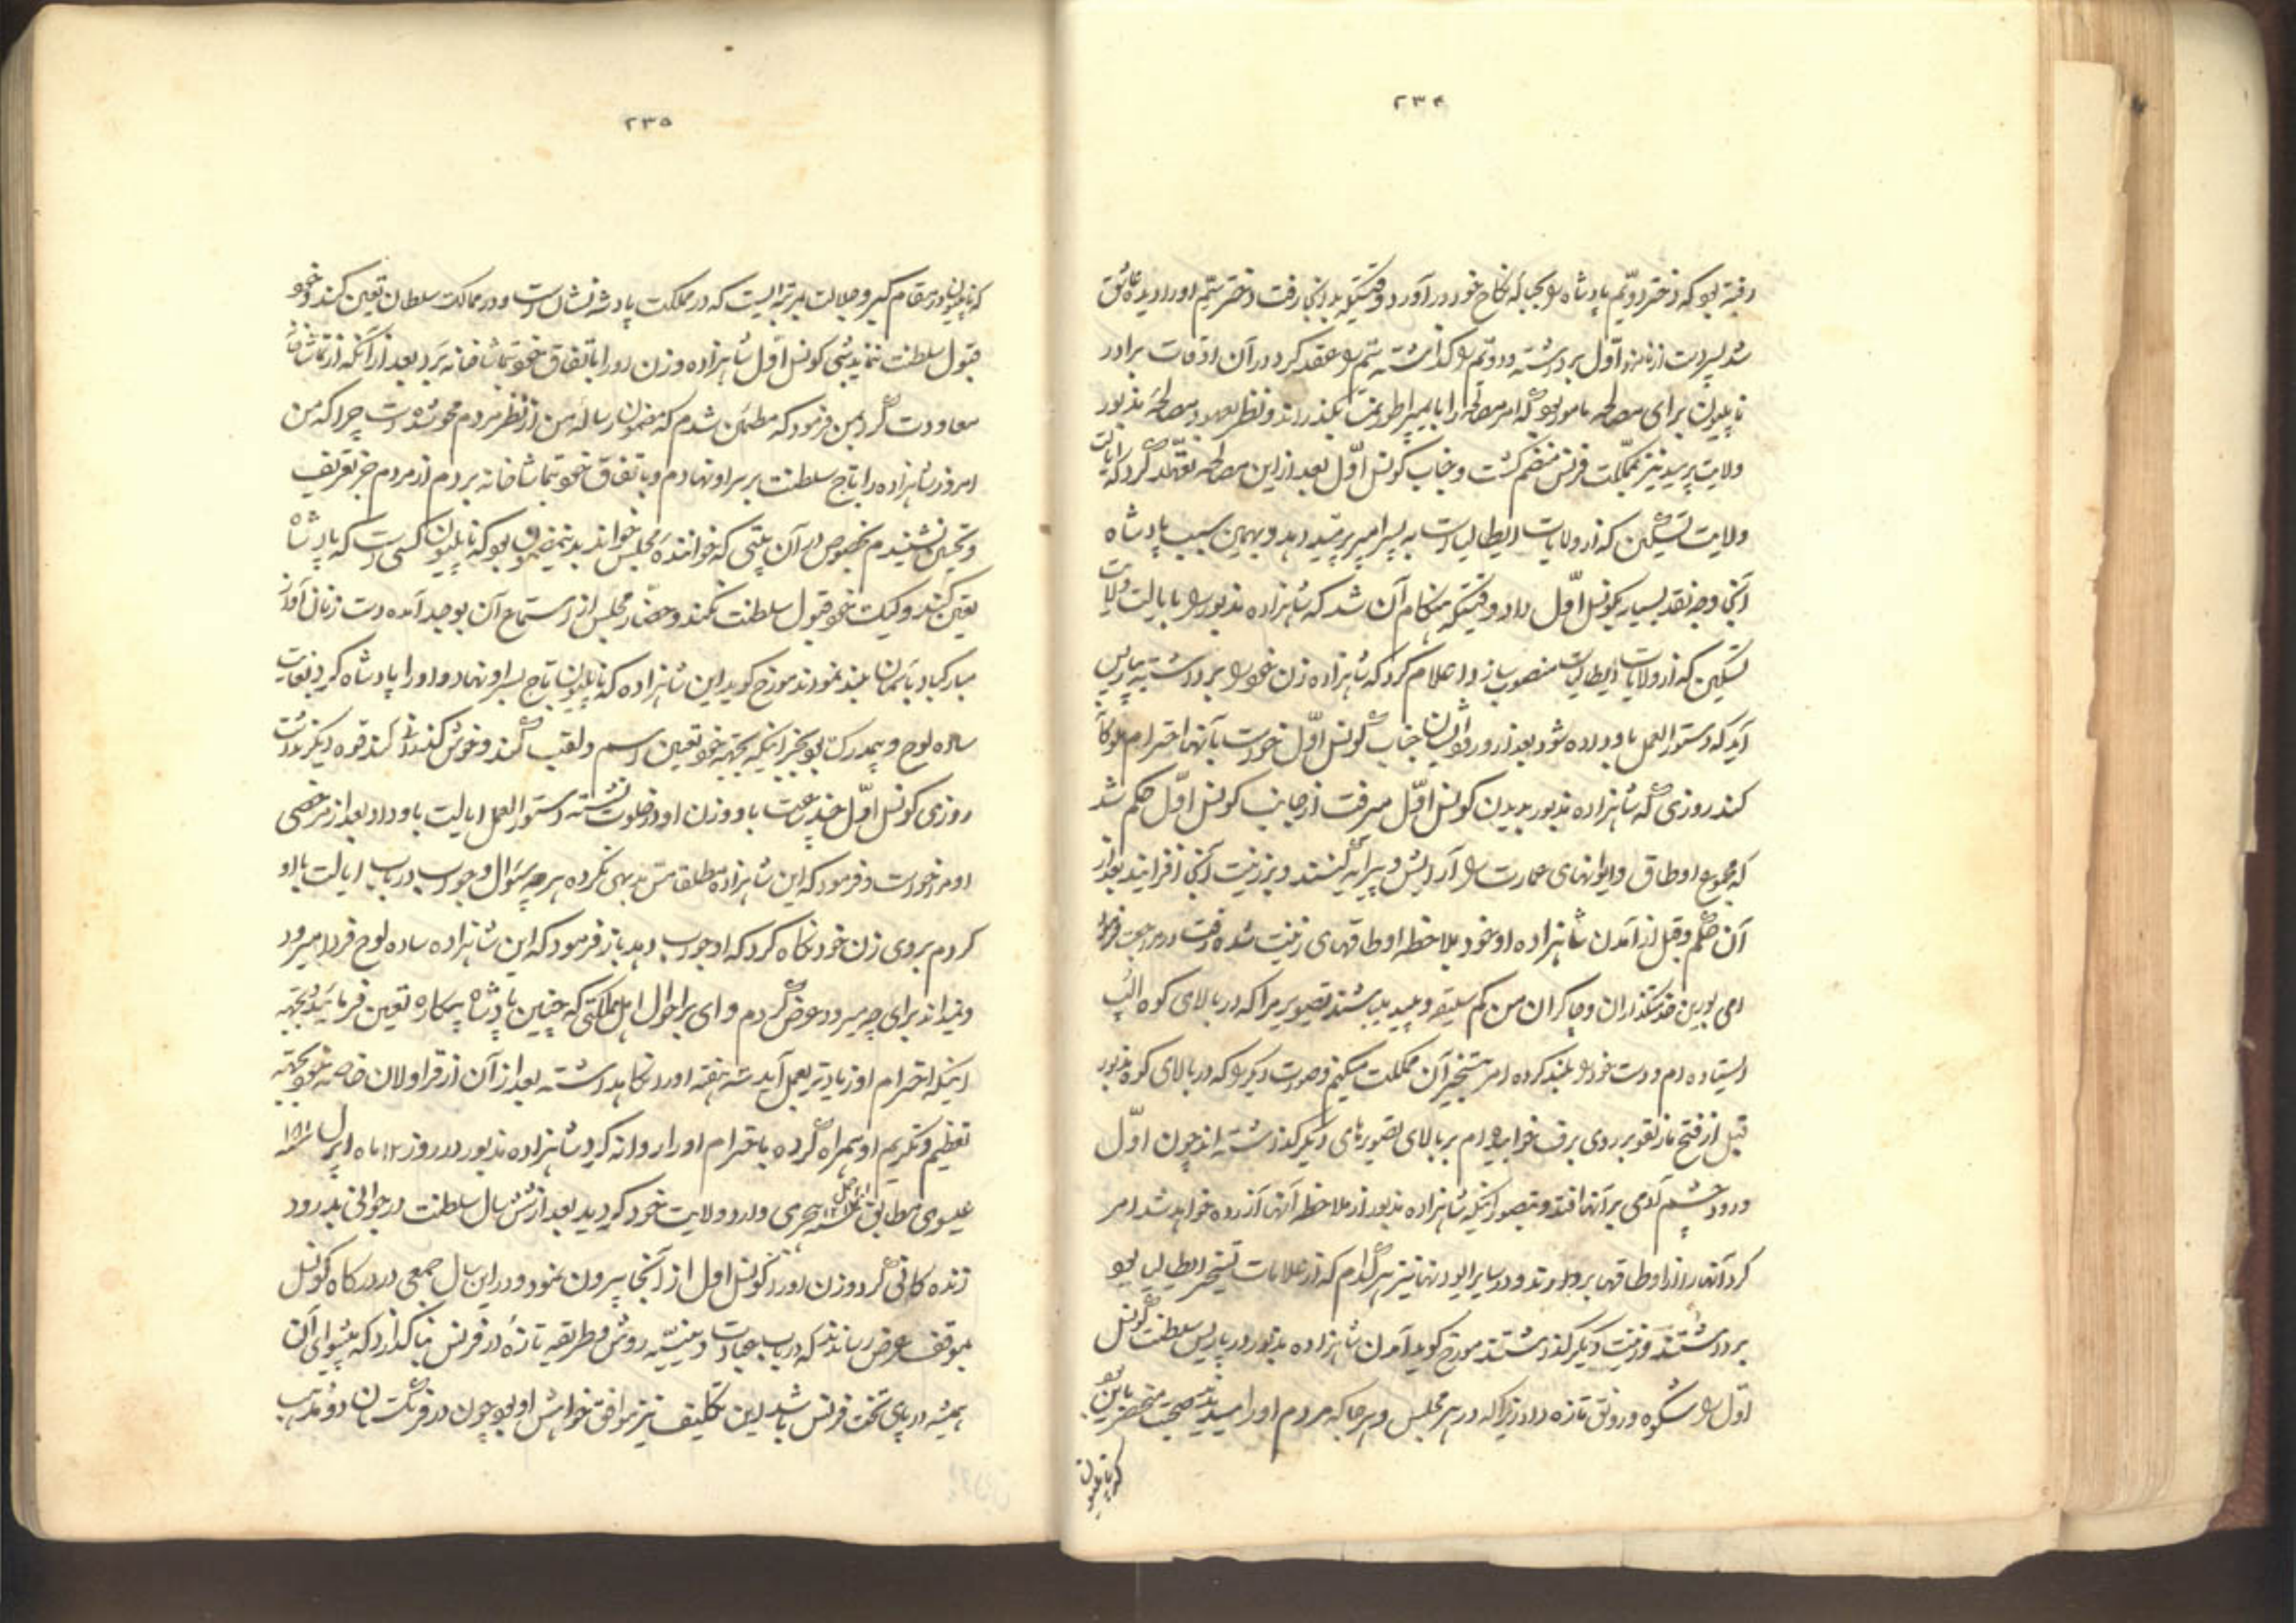 ۲۳۴
رفته بود که دختر دویّم پادشاه را بحباله نکاح خود در آورد وقتیکه بدانجا رفت دختر سیّم او را دیده عاشق
شد پس دست از نامزد اول برداشته و دویّم را گذاشته سیّم را عقد کرد در آن اوقات برادر
ناپلیون برای مصالحه مامور بود که امر مصالحه را با ایمپراطور نمسه بگذراند و نظر بعهود مصالحه مذبور
ولایت نیز بمملکت فرنس منضم گشت و جناب کونسل اوّل بعد از این مصالحه تعهّد کرد که ایالت
ولایت تسکین که از ولایات ایطالیا است به پسر امیر بدهد و بهمین سبب پادشاه
آنجا وجه نقد بسیار بکونسل اوّل داد وقتیکه هنگام آن شد که شاهزاده مذبور را بایالت ولایت
تسکین که از ولایات ایطالیا است منصوب سازد اعلام کرد که شاهزاده زن خود را برداشته به پاریس
آید که دستور العمل باو داده شود بعد از ورود ایشان جناب کونسل اوّل خواست بآنها احترام ملوکانه
کند روزی که شاهزاده مذبور بدیدن کونسل اوّل میرفت از جانب کونسل اوّل حکم شد
که مجموع اوطاق و ایوانهای عمارت را آرایش و پیرایه کنند و بر زینت آنجا افزایند بعد از
آن حکم و قبل از آمدن شاهزاده او خود بملاحظه اوطاقهای زینت شده رفت در مراجعت فرمود
ای بورین خدمتگذاران و چاکران من کم سلیقه و پلید میباشند تصویر مرا که در بالای کوه الپ
ایستاده ام و دست خود را بلند کرده امر بتسخیر آن مملکت میکنم و صورت دیگر را که در بالای کوه مذبور
قبل از فتح مارنقو بر روی برف خوابیده ام بر بالای تصویرهای دیگر گذاشته اند چون اوّل
ورود چشم آدمی بر آنها افتد و بتصور اینکه شاهزاده مذبور از ملاحظه آنها آزرده خواهد شد امر
کرد آنها را از اوطاقها بردارند و در سایر ایوانها نیز هر کدام که از علامات تسخیر ایطالیا بود
برداشتند و زینت دیگر گذاشتند مورخ گوید آمدن شاهزاده مذبور در پاریس سلطنت کونسل
اوّل را شکوه و رونق تازه داد زیرا که در هر مجلس و هر جا که مردم او را میدیدند صحبت منحصر باین بود
که ناپلیون
۲۳۵
که ناپلیون در مقام کبر و جلالت بمرتبه ایست که در مملکت پادشه نشان است و در ممالک سلطان تعیین کند و خود
قبول سلطنت ننماید شبی کونسل اوّل شاهزاده و زن او را باتفاق خود بتماشاخانه برد بعد از آنکه از تماشاخانه
معاودت کرد بمن فرمود که مطمئن شدم که مضمون رساله من از نظر مردم محو شده است چرا که من
امروز شاهزاده را تاج سلطنت بر سر او نهادم و باتفاق خود بتماشاخانه بردم از مردم جز تعریف
و تحسین نشنیدم بخصوص در آن بیتی که خواننده مجلس خواند بدینمضمون بود که ناپلیون کسی است که پادشاه
تعیین کند ولیکن خود قبول سلطنت نکند و حضّار مجلس از استماع آن بوجد آمده دست زنان آواز
مبارکباد بآسمان بلند نمودند مورخ گوید این شاهزاده که ناپلیون تاج بسر او نهاد و او را پادشاه کرد بغایت
ساده لوح و بیمدرک بود بجز اینکه بجهه خود تعیین اسم و لقب کند و خوش گذرانی کند قوه دیگر نداشت
روزی کونسل اوّل چند ساعت با او و زن او در خلوت نشسته دستور العمل ایالت باو داد بعد از مرخصی
او مرا خواست و فرمود که این شاهزاده مطلقا مشق ندیمی نکرده هر چه سئوال و جواب در باب ایالت با او
کردم بروی زن خود نگاه کرد که او جواب دهد باز فرمود که این شاهزاده ساده لوح فردا میرود
و نمیداند برای چه میرود عرض کردم وای بر احوال اهل مملکتی که چنین پادشاه بیکاره تعیین فرمائید بجهه
اینکه احترام او زیادتر بعمل آید سه هفته او را نگاهداشته بعد از آن از قراولان خاصه خود بجهه
تعظیم و تکریم او همراه کرده باحترام او را روانه کرد شاهزاده مذبور در روز ۱۲ ماه اپریل ۱۸۰۱
عیسوی مطابق سنه هجری وارد ولایت خود گردید بعد از شش سال سلطنت در جوانی بدرود
زنده کانی کرد و زن او را کونسل اول از آنجا بیرون نمود و در این سال جمعی در درگاه کونسل
بموقف عرض رساندند که در باب عبادت دینیّه روش و طریقه تازه در فرنس بنا گذارد که پیشوای آن
همیشه در پای تخت فرنس باشد این تکلیف نیز موافق خواهش او بود چون در فرنگستان دو مذهب